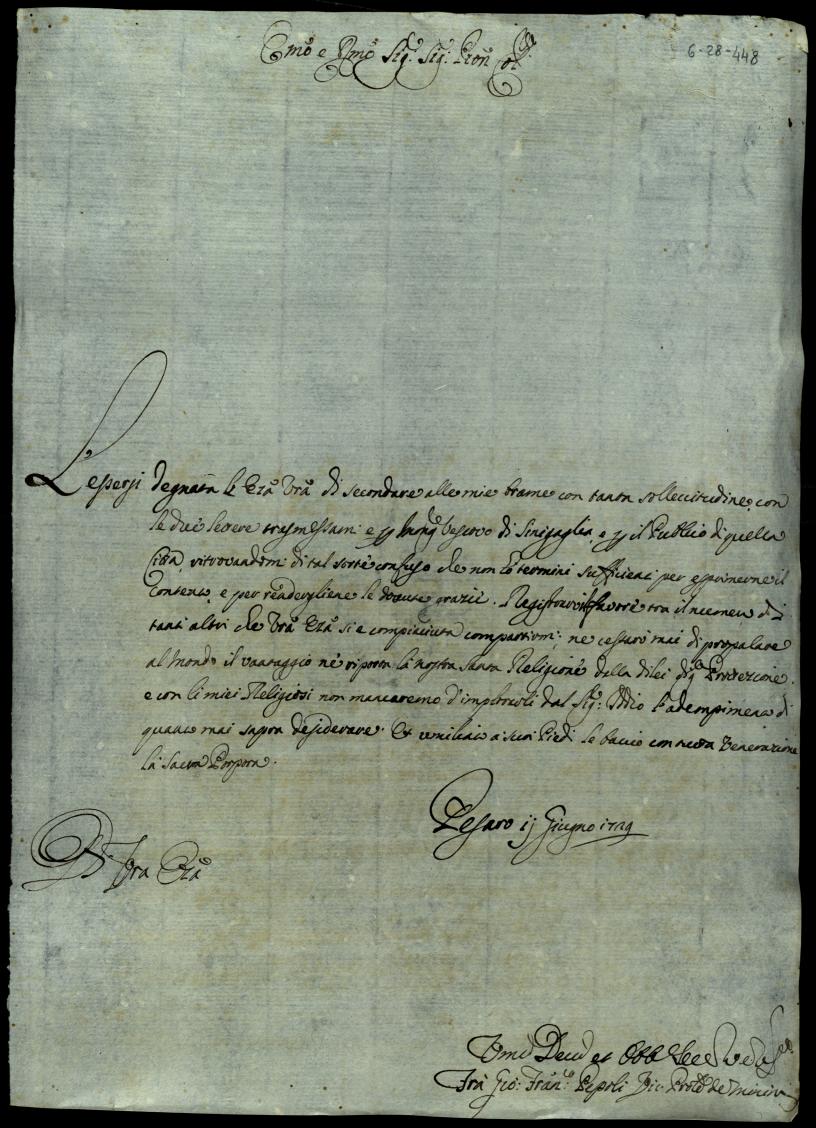 6-28-448
Emo e Rmo Sig: Sig: Pron Col
L'essersi degnata l'Eza Vra di secondare alle mie brame con tanta sollecitudine, con
le due lettere trasmessami e p Mong Vescovo di Sinigaglia, e p il Publico di quella
Città, ritrovandomi di tal sorte confuso che non hò termini sufficienti per esprimerne il
contento, e per rendergliene le dovute grazie. Registrarò il favore tra il numero di
tanti altri che Vra Eza si è compiaciuta compartirmi; ne cessarò mai di propalare
al Mondo il vantaggio ne riporta la nostra Santa Religione della di lei Protezione.
e con li miei Religiosi non mancaremo d'implorarli dal Sig: Iddio l'adempimento di
quanto mai sapra desiderare. Et umiliato a suoi Piedi le baccio con tutta Venerazione
la Sacra Porpora.
Pesaro 1j Giugno 1729
D. Vra Eza
Umo Devo et Obb
Frà Gio: Franco Pepoli Vic: de Minimi